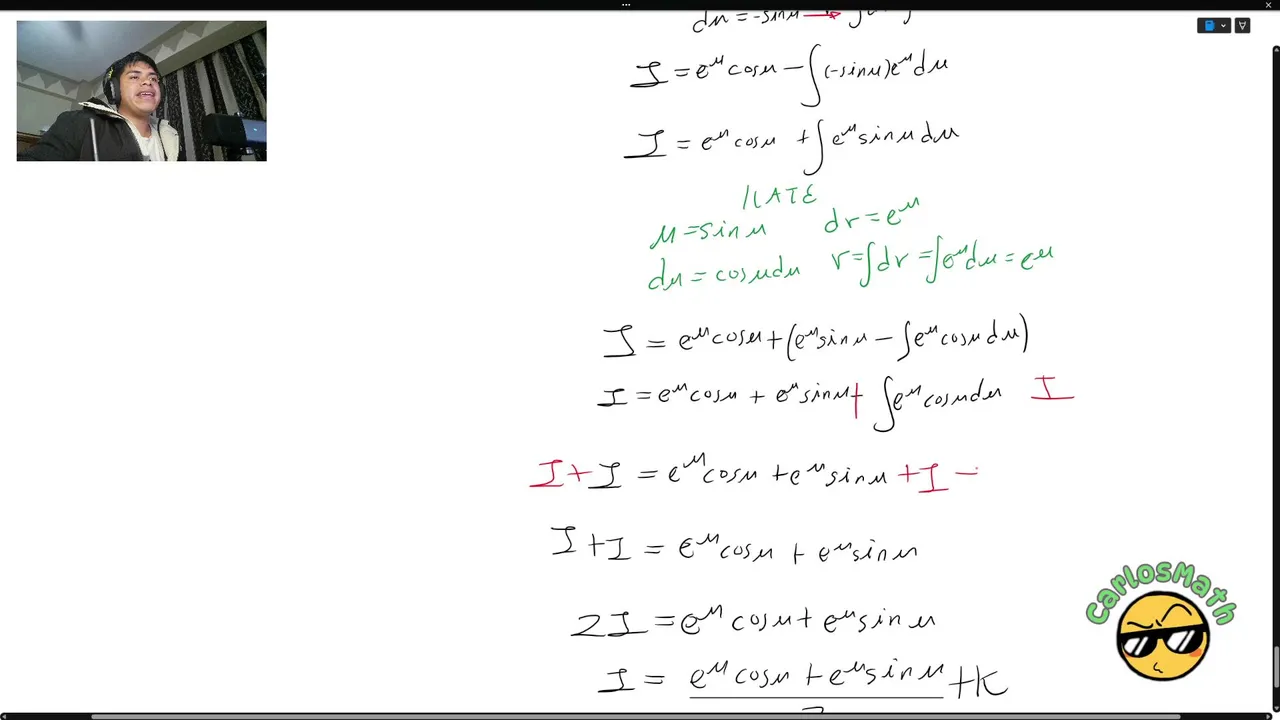 I = e^u cosu − ∫(-sinu)e^u du
I = e^u cosu + ∫e^u sinu du
ILATE
u = sinu dv = e^u
du = cosudu v = ∫dv = ∫e^u du = e^u
I = e^u cosu + (e^u sinu − ∫e^u cosu du)
I = e^u cosu + e^u sinu + ∫e^u cosudu I
I + I = e^u cosu + e^u sinu + I −
I + I = e^u cosu + e^u sinu
2I = e^u cosu + e^u sinu
I = e^u cosu + e^u sinu + K
CarlosMath